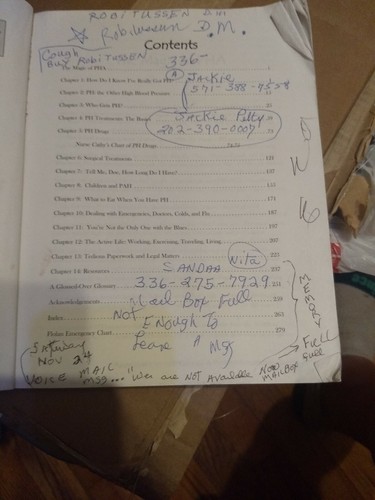 ROBITUSSEN D.M
Robitussin D.M.
Contents
Cough
BUY ROBITUSSEN
336-
The Magic of PHA
1
A
JACKIE
Chapter 1: How Do I Know I've Really Got PH?
571-388-7558
Chapter 2: PH: the Other High Blood Pressure
Chapter 3: Who Gets PH?
25
Jackie Pitty
Chapter 4: PH Treatments: The Basics
202-390-0009
Chapter 5: PH Drugs
73
Nurse Cathy's Chart of PH Drugs
Chapter 6: Surgical Treatments
121
Chapter 7: Tell Me, Doc, How Long Do I Have?
137
Chapter 8: Children and PAH
155
Chapter 9: What to Eat When You Have PH
171
Chapter 10: Dealing with Emergencies, Doctors, Colds, and Flu
187
Chapter 11: You're Not the Only One with the Blues
197
Chapter 12: The Active Life: Working, Exercising, Traveling, Living
207
Nita
Chapter 13: Tedious Paperwork and Legal Matters
223
SANDRA
Chapter 14: Resources
237
336-275-7929
A Glossed-Over Glossary
251
Mail Box Full
Acknowledgements
259
Not
Index
265
Enough To
Phelan Emergency Chart
279
Leave A Msg
MEMORY
Full
Saturday
Nov 24
VOICE MAIL
msg... "We are NOT AVAILABLE NOW
MAILBOX